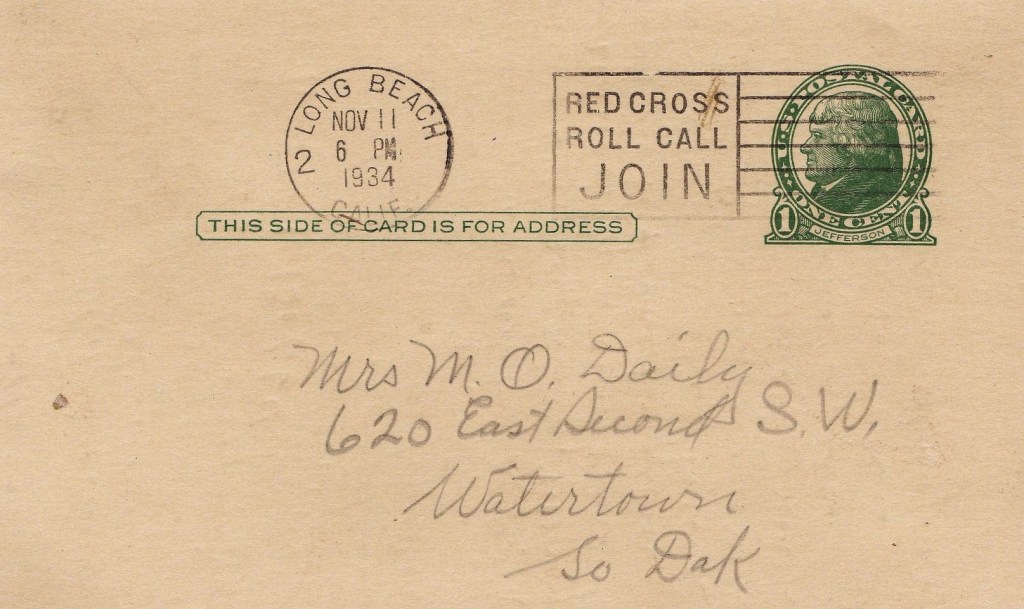 LONG BEACH
NOV 11
6 PM
1934
2
CALIF.
RED CROSS
ROLL CALL
JOIN
U.S. POSTAL CARD
ONE CENT
1 JEFFERSON 1
THIS SIDE OF CARD IS FOR ADDRESS
Mrs M. O. Daily
620 East Second S. W.
Watertown
So Dak